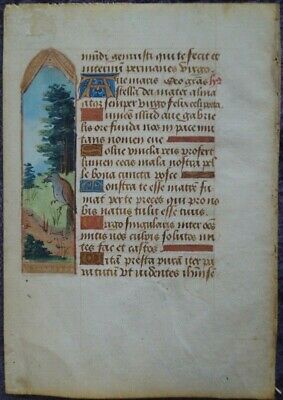 mundi genuisti qui te fecit et
ineternũ permanes virgo
Aue maris Deo grãs hỹ
stella dei mater alma
atqz semper virgo felix celi porta
Sumes illud aue gabrie
lis ore funda nos in pace mu
tans nomen eue
Solue vincla reis profert
lumen cecis mala nostra pel
le bona cuncta posce
Monstra te esse matrẽ su
mat per te preces qui pro no
bis natus tulit esse tuus
Virgo singularis inter oms
mitis nos culpis solutos mi
tes fac et castos
Vitã presta purã iter pa
ra tutũ Vt videntes ihũ sẽ